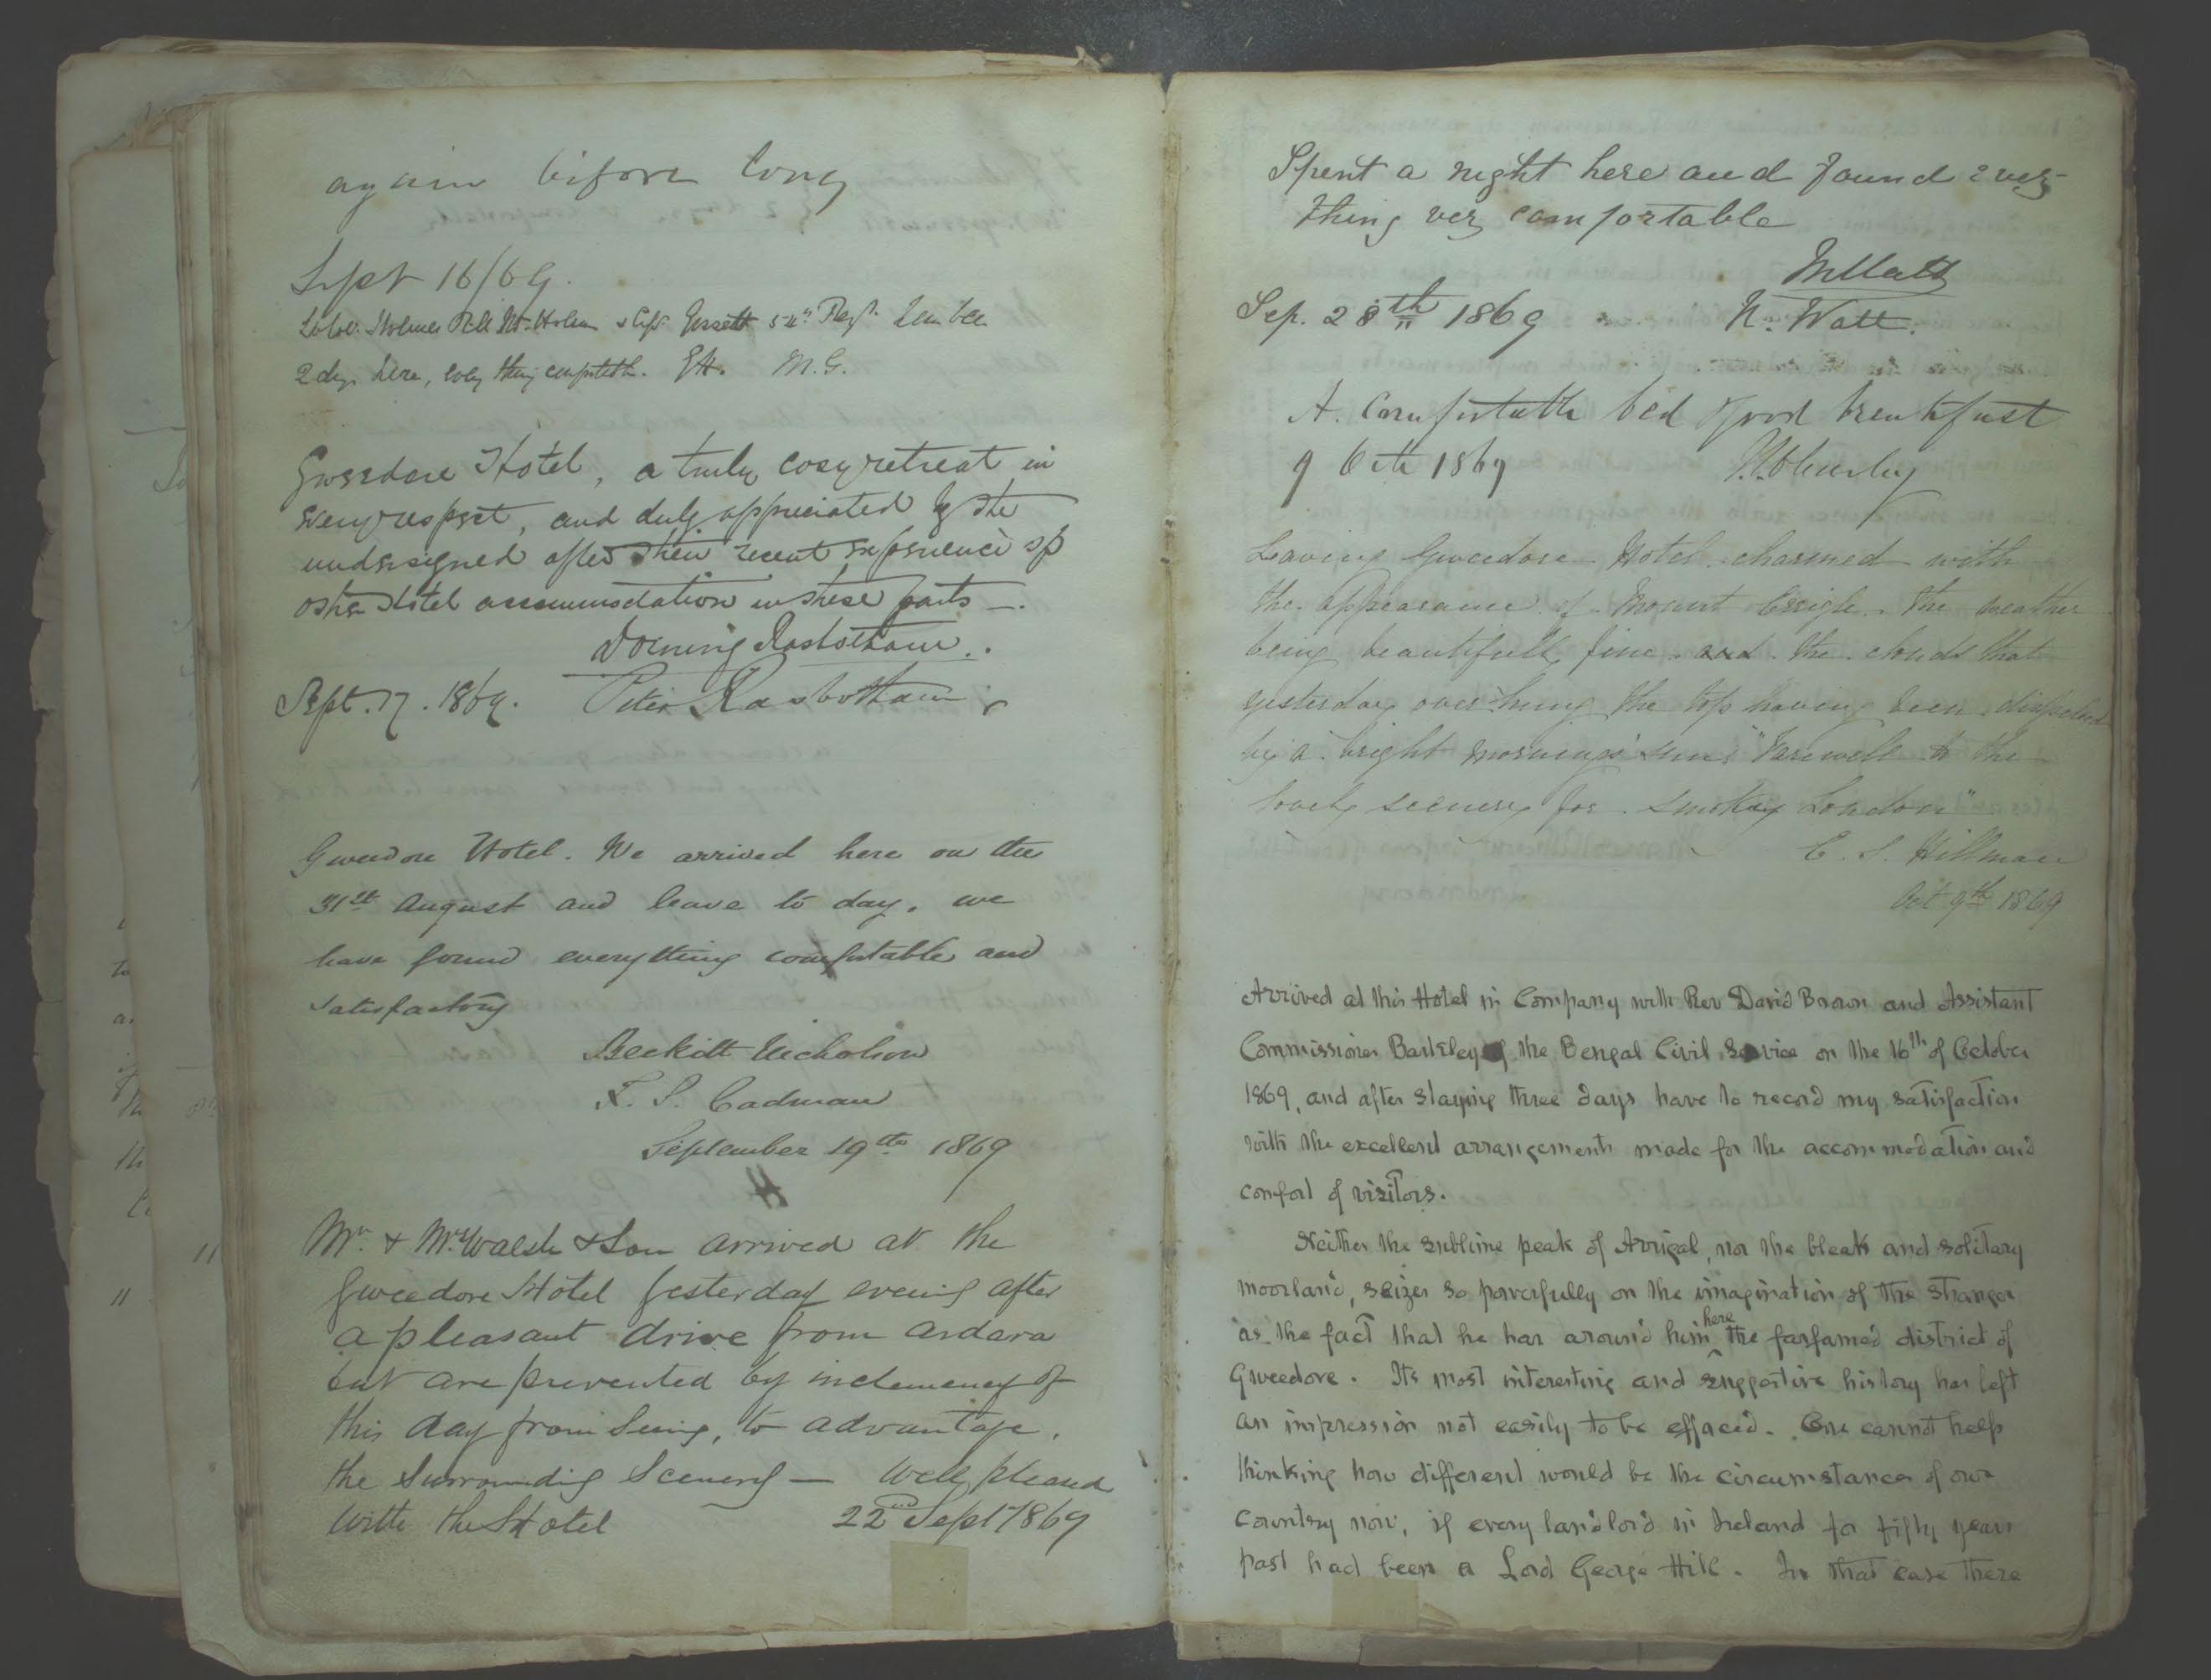 again before long
Sept 16/69.
2 days here, every thing comfortable. M.G.
Gweedore Hotel, a truly cosy retreat in
every respect, and duly appreciated by the
undersigned after their recent experience of
other Hotel accommodation in these parts —.
Dorning Rasbotham.
Sept. 17. 1869. Peter Rasbotham
Gweedore Hotel. We arrived here on the
31st August and leave to day. we
have found everything comfortable and
satisfactory
Beckitt Nicholson
S. Cadman
September 19th 1869
Mr. & Mrs Walsh & Son arrived at the
Gweedore Hotel yesterday evening after
a pleasant drive from Ardara
but are prevented by inclemency of
this day from seeing, to advantage,
the surrounding scenery — Well pleased
with the Hotel 22nd Sept 1869
Spent a night here and found every-
thing very comfortable
Sep. 28th 1869 N. Watt.
A Comfortable bed & good breakfast
9 Oct 1869
Leaving Gweedore Hotel charmed with
the appearance of Mount Errigle. The weather
being beautifully fine and the clouds that
yesterday over-hung the top having been dispelled
by a bright morning's sun. "Farewell to the
lovely scenery for smoky London"
C. S. Hillman
Oct 9th 1869
Arrived at this Hotel in Company with Rev David Brown and Assistant
Commissioner Barkley of the Bengal Civil Service on the 16th of October
1869, and after staying three days have to record my satisfaction
with the excellent arrangements made for the accommodation and
comfort of visitors.
Neither the sublime peak of Arrigal, nor the bleak and solitary
moorland, seizes so powerfully on the imagination of the stranger
as the fact that he has around him here the farfamed district of
Gweedore. Its most interesting and suggestive history has left
an impression not easily to be effaced. One cannot help
thinking how different would be the circumstances of our
Country now, if every landlord in Ireland for fifty years
past had been a Lord George Hill. In that case there